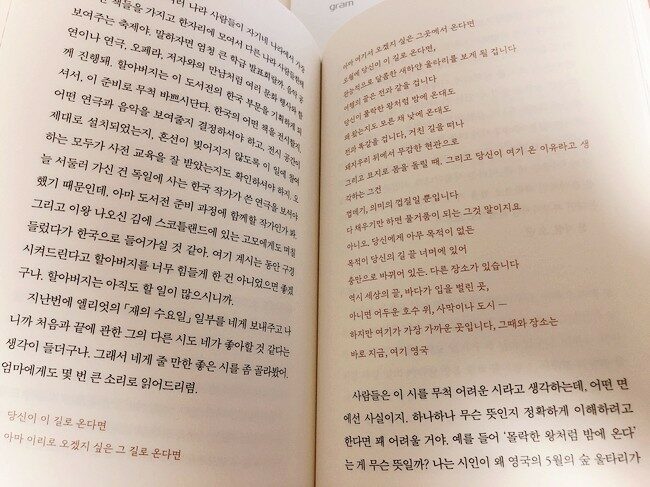 책들을 가지고 한자리에 모여서 다른 나라 사람들한테
보여주는 축제야. 말하자면 엄청 큰 학급 발표회랄까. 음악 공
연이나 연극, 오페라, 저자와의 만남처럼 여러 문화 행사와 함
께 진행돼. 할아버지는 이 도서전의 한국 부문을 기획하게 되
셔서, 이 준비로 무척 바쁘시단다. 한국의 어떤 책을 전시할지,
어떤 연극과 음악을 보여줄지 결정하셔야 하고, 전시 공간이
제대로 설치되었는지, 혼선이 빚어지지 않도록 이 일에 참여
하는 모두가 사전 교육을 잘 받았는지도 확인하셔야 하지. 오
늘 서둘러 가신 건 독일에 사는 한국 작가가 쓴 연극을 보셔야
했기 때문인데, 아마 도서전 준비 과정에 함께할 작가인가 봐.
그리고 이왕 나오신 김에 스코틀랜드에 있는 고모에게도 며칠
들렀다가 한국으로 들어가실 것 같아. 여기 계시는 동안 구경
시켜드린다고 할아버지를 너무 힘들게 한 건 아니었으면 좋겠
구나. 할아버지는 아직도 할 일이 많으시니까.
지난번에 엘리엇의 「재의 수요일」 일부를 네게 보내주고 나
니까 처음과 끝에 관한 그의 다른 시도 네가 좋아할 것 같다는
생각이 들더구나. 그래서 네게 줄 만한 좋은 시를 좀 골라봤어.
엄마에게도 몇 번 큰 소리로 읽어드리렴.
당신이 이 길로 온다면
아마 이리로 오겠지 싶은 그 길로 온다면
gram
아마 여기서 오겠지 싶은 그곳에서 온다면
오월에 당신이 이 길로 온다면,
관능적으로 달콤한 새하얀 울타리를 보게 될 겁니다
여행의 끝은 전과 같을 겁니다
당신이 몰락한 왕처럼 밤에 온대도
왜 왔는지도 모른 채 낮에 온대도
전과 똑같을 겁니다, 거친 길을 떠나
돼지우리 뒤에서 무감한 현관으로
그리고 묘지로 몸을 돌릴 때. 그리고 당신이 여기 온 이유라고 생
각하는 그건
껍데기, 의미의 껍질일 뿐입니다
다 채우기만 하면 물거품이 되는 그것 말이지요
아니오, 당신에게 아무 목적이 없든
목적이 당신의 길 끝 너머에 있어
충만으로 바뀌어 있든. 다른 장소가 있습니다
역시 세상의 끝, 바다가 입을 벌린 곳,
아니면 어두운 호수 위, 사막이나 도시 —
하지만 여기가 가장 가까운 곳입니다, 그때와 장소는
바로 지금, 여기 영국
사람들은 이 시를 무척 어려운 시라고 생각하는데, 어떤 면
에선 사실이지. 하나하나 무슨 뜻인지 정확하게 이해하려고
한다면 꽤 어려울 거야. 예를 들어 '몰락한 왕처럼 밤에 온다'
는 게 무슨 뜻일까? 나는 시인이 왜 영국의 5월의 숲 울타리가